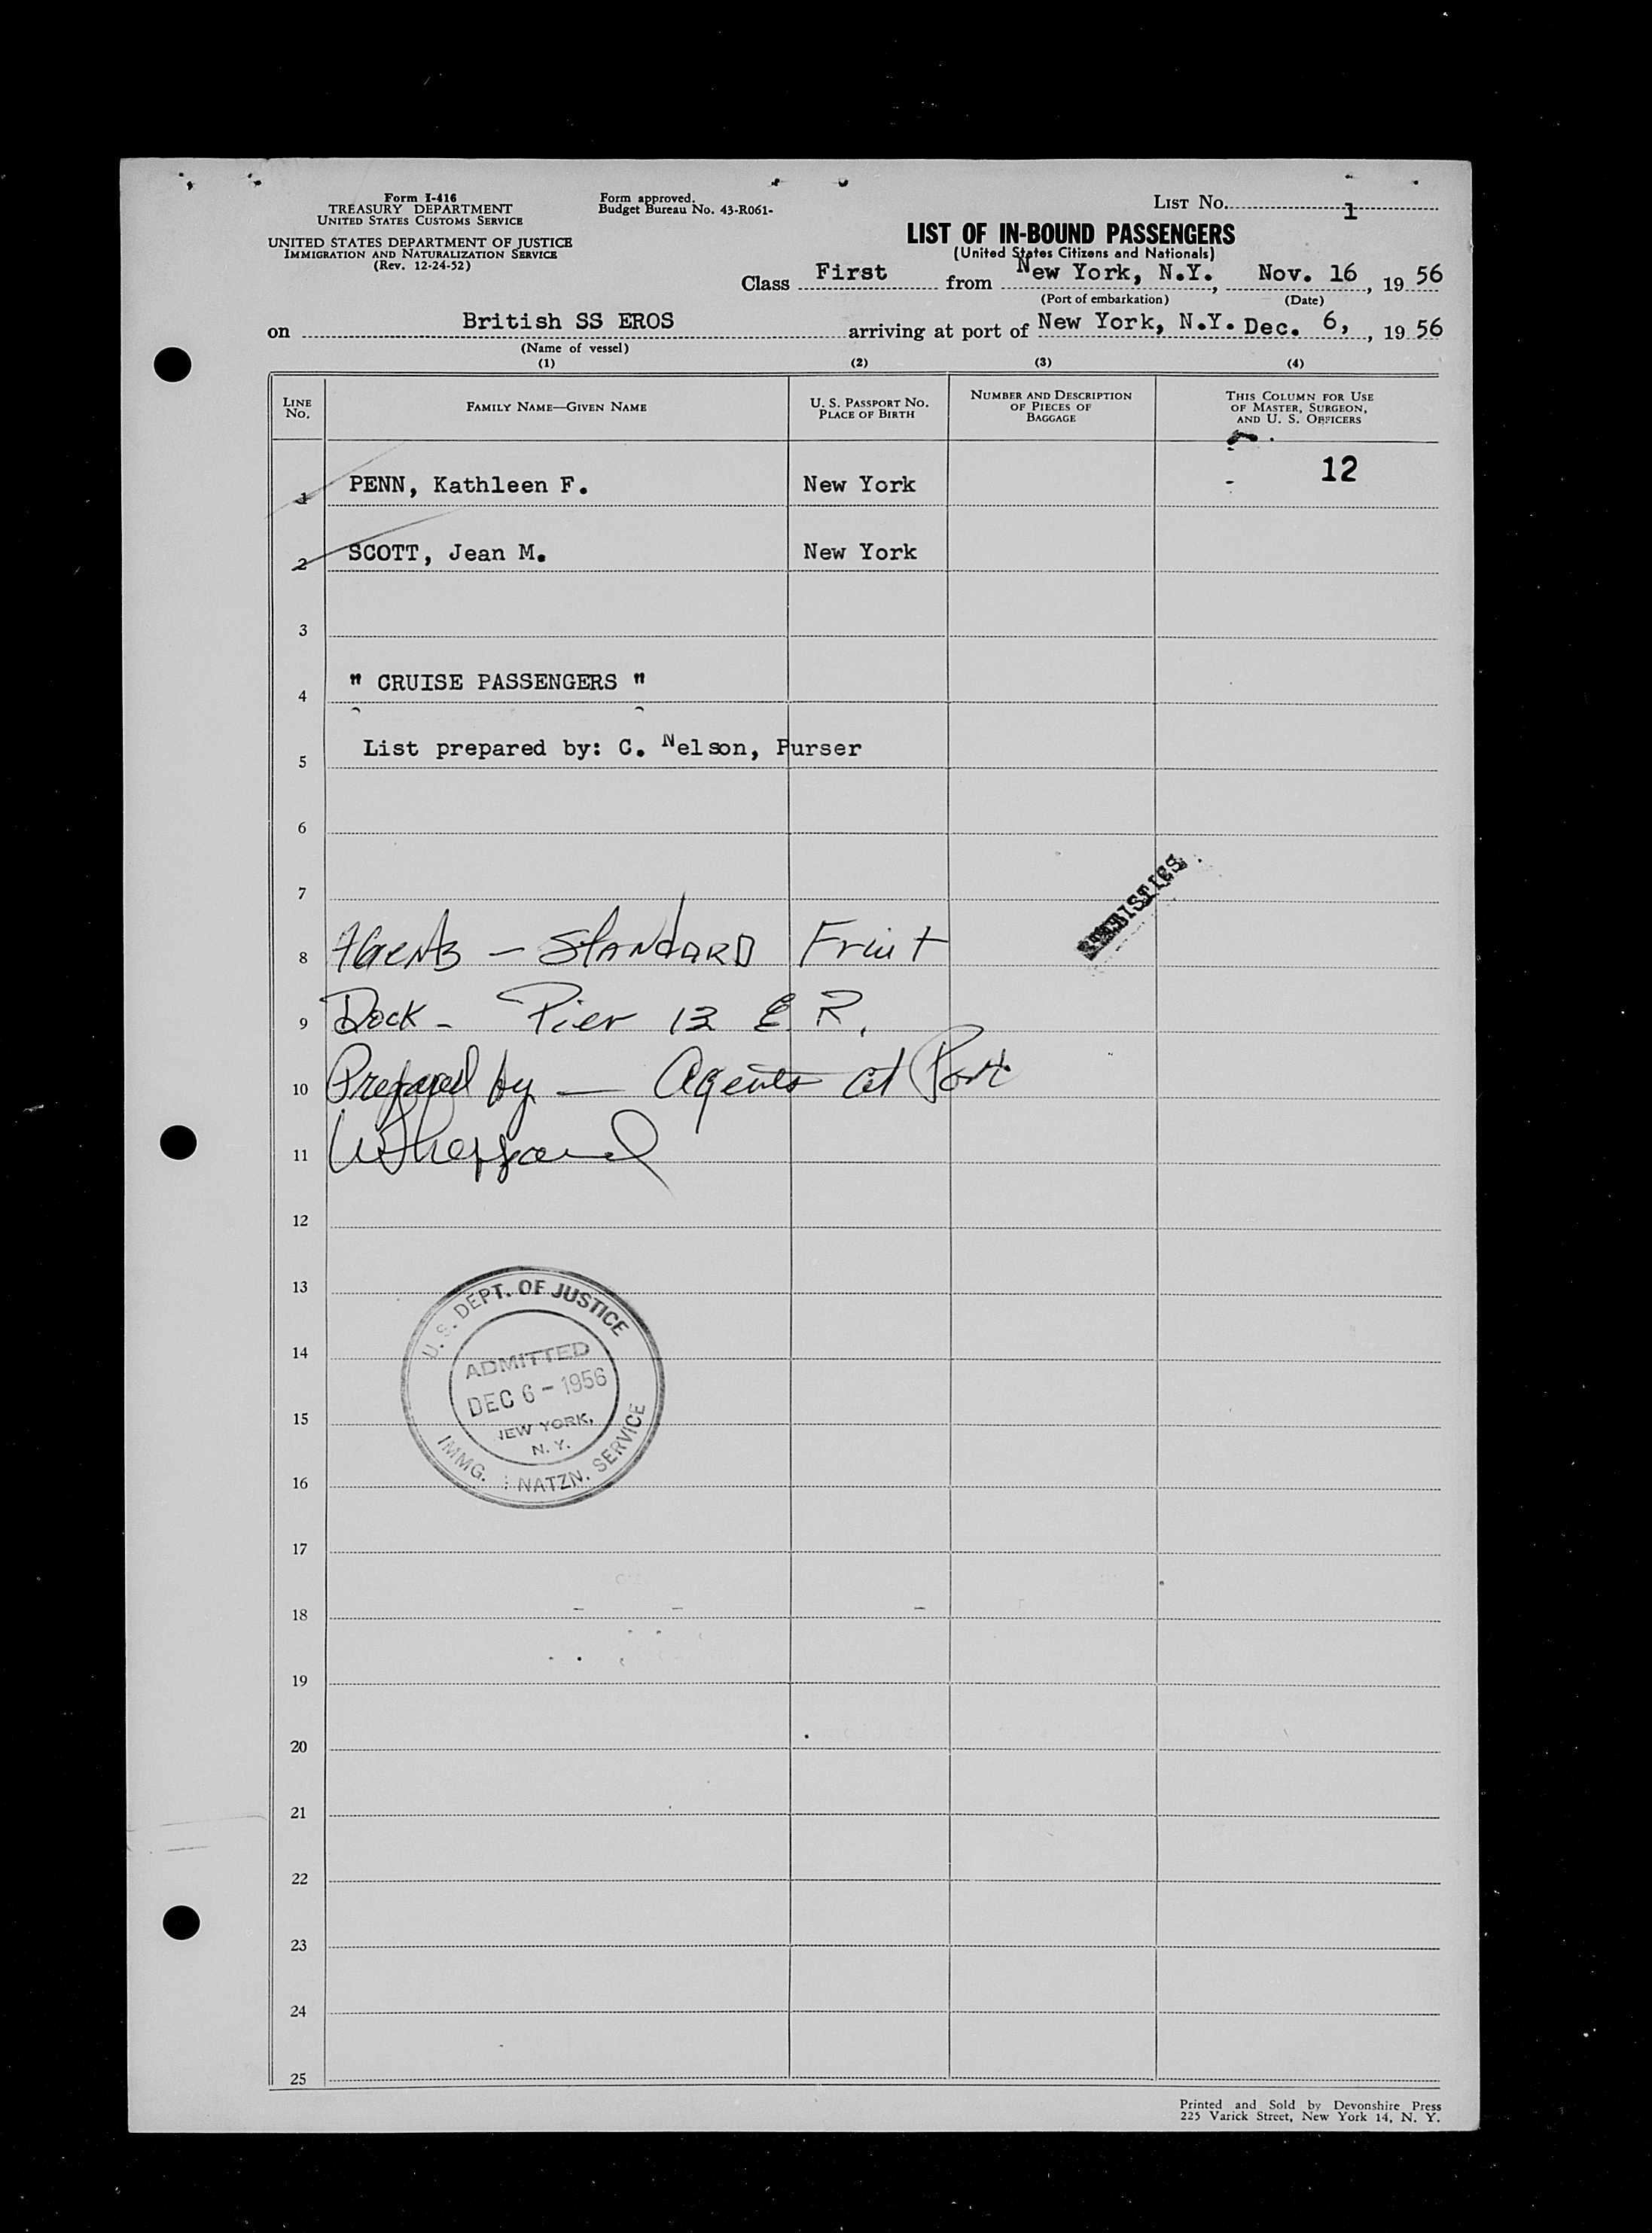 Form I-416
TREASURY DEPARTMENT
UNITED STATES CUSTOMS SERVICE
UNITED STATES DEPARTMENT OF JUSTICE
IMMIGRATION AND NATURALIZATION SERVICE
(Rev. 12-24-52)
Form approved.
Budget Bureau No. 43-R061-
LIST No. 1
LIST OF IN-BOUND PASSENGERS
(United States Citizens and Nationals)
Class First from New York, N.Y., Nov. 16, 19 56
(Port of embarkation) (Date)
on British SS EROS arriving at port of New York, N.Y. Dec. 6, , 19 56
(Name of vessel)
(1) (2) (3) (4)
LINE No. FAMILY NAME—GIVEN NAME U. S. PASSPORT No. PLACE OF BIRTH NUMBER AND DESCRIPTION OF PIECES OF BAGGAGE THIS COLUMN FOR USE OF MASTER, SURGEON, AND U. S. OFFICERS
12
1 PENN, Kathleen F. New York
2 SCOTT, Jean M. New York
3
4 " CRUISE PASSENGERS "
5 List prepared by: C. Nelson, Purser
6
7
8 Agents - Standard Fruit
9 Dock - Pier 13 E R.
10 Prepared by — Agents at Port
11
12
13
14
15
16
17
18
19
20
21
22
23
24
25
U. S. DEPT. OF JUSTICE
ADMITTED
DEC 6 - 1956
NEW YORK,
N. Y.
IMMG. NATZN. SERVICE
Printed and Sold by Devonshire Press
225 Varick Street, New York 14, N. Y.